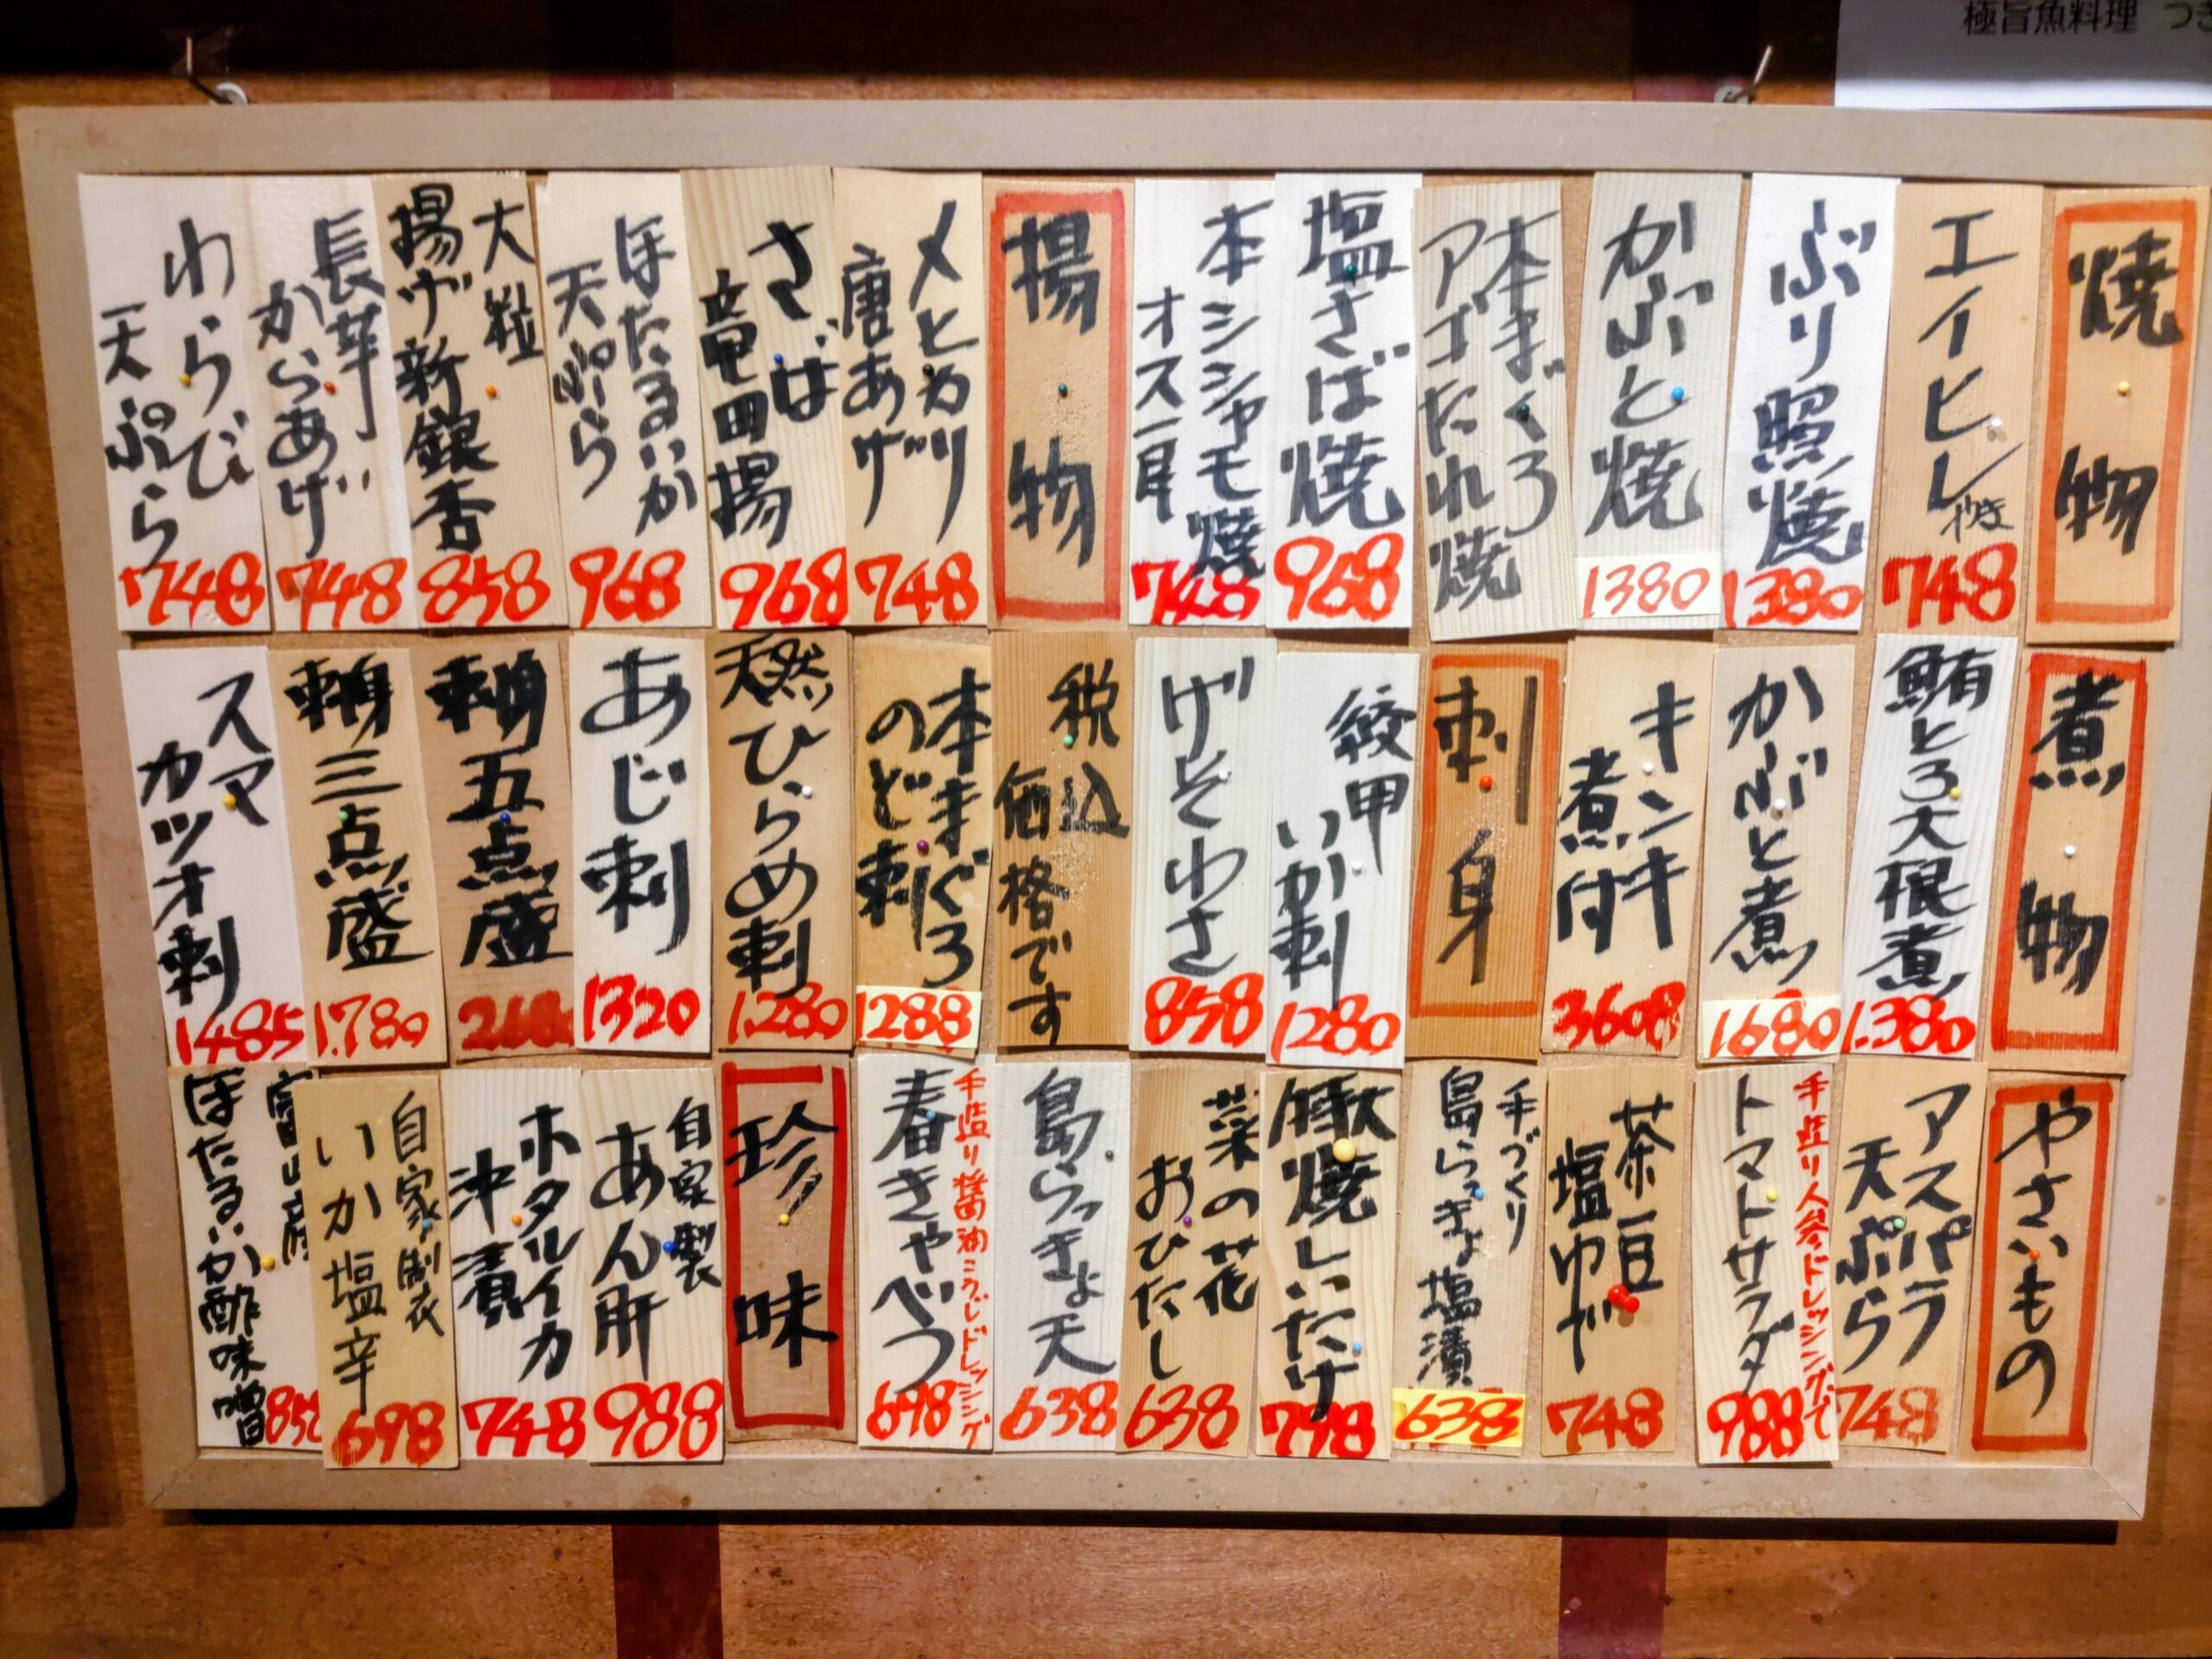 極旨魚料理 つき
焼物
エイヒレやき
748
ぶり照焼
1380
かぶと焼
1380
本まぐろ
アゴたれ焼
塩さば焼
968
本シシャモ焼
オス一尾
748
揚物
メヒカリ
唐あげ
748
さば
竜田揚
968
ほたるいか
天ぷら
968
大粒
揚げ新銀杏
858
長芋
からあげ
748
わらび
天ぷら
748
煮物
鮪とろ大根煮
1.380
かぶと煮
1680
キンキ
煮付
3608
刺身
紋甲
いか刺
1280
げそわさ
858
税込
価格です
本まぐろ
のど刺
1288
天然ひらめ刺
1.280
あじ刺
1320
刺身五点盛
刺身三点盛
1.780
スマ
カツオ刺
1485
やさいもの
アスパラ
天ぷら
748
手造り人参ドレッシングで
トマトサラダ
988
茶豆
塩ゆで
748
手づくり
島らっきょ塩漬
638
焼しいたけ
798
菜の花
おひたし
638
島らっきょ天
638
手造り醤油こうじドレッシング
春きゃべつ
698
珍味
自家製
あん肝
988
ホタルイカ
沖漬
748
自家製
いか塩辛
698
富山産
ほたるいか酢味噌
858